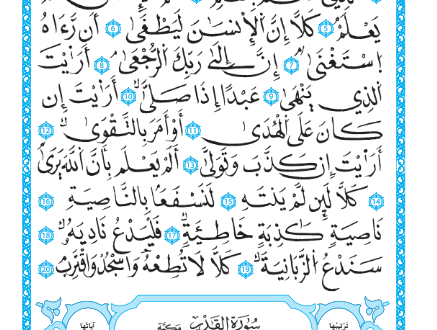 يَعْلَمْ ٥ كَلَّا إِنَّ ٱلْإِنسَٰنَ لَيَطْغَىٰٓ ٦ أَن رَّءَاهُ
ٱسْتَغْنَىٰٓ ٧ إِنَّ إِلَىٰ رَبِّكَ ٱلرُّجْعَىٰٓ ٨ أَرَءَيْتَ
ٱلَّذِى يَنْهَىٰ ٩ عَبْدًا إِذَا صَلَّىٰٓ ١٠ أَرَءَيْتَ إِن
كَانَ عَلَى ٱلْهُدَىٰٓ ١١ أَوْ أَمَرَ بِٱلتَّقْوَىٰٓ ١٢
أَرَءَيْتَ إِن كَذَّبَ وَتَوَلَّىٰٓ ١٣ أَلَمْ يَعْلَم بِأَنَّ ٱللَّهَ يَرَىٰ
١٤ كَلَّا لَئِن لَّمْ يَنتَهِ ١٥ لَنَسْفَعًۢا بِٱلنَّاصِيَةِ ١٦
نَاصِيَةٍ كَٰذِبَةٍ خَاطِئَةٍ ١٧ فَلْيَدْعُ نَادِيَهُۥ ١٨
سَنَدْعُ ٱلزَّبَانِيَةَ ١٩ كَلَّا لَا تُطِعْهُ وَٱسْجُدْ وَٱقْتَرِب ٢٠
ترتيبها سُورَةُ ٱلْقَدْرِ مكية آياتها